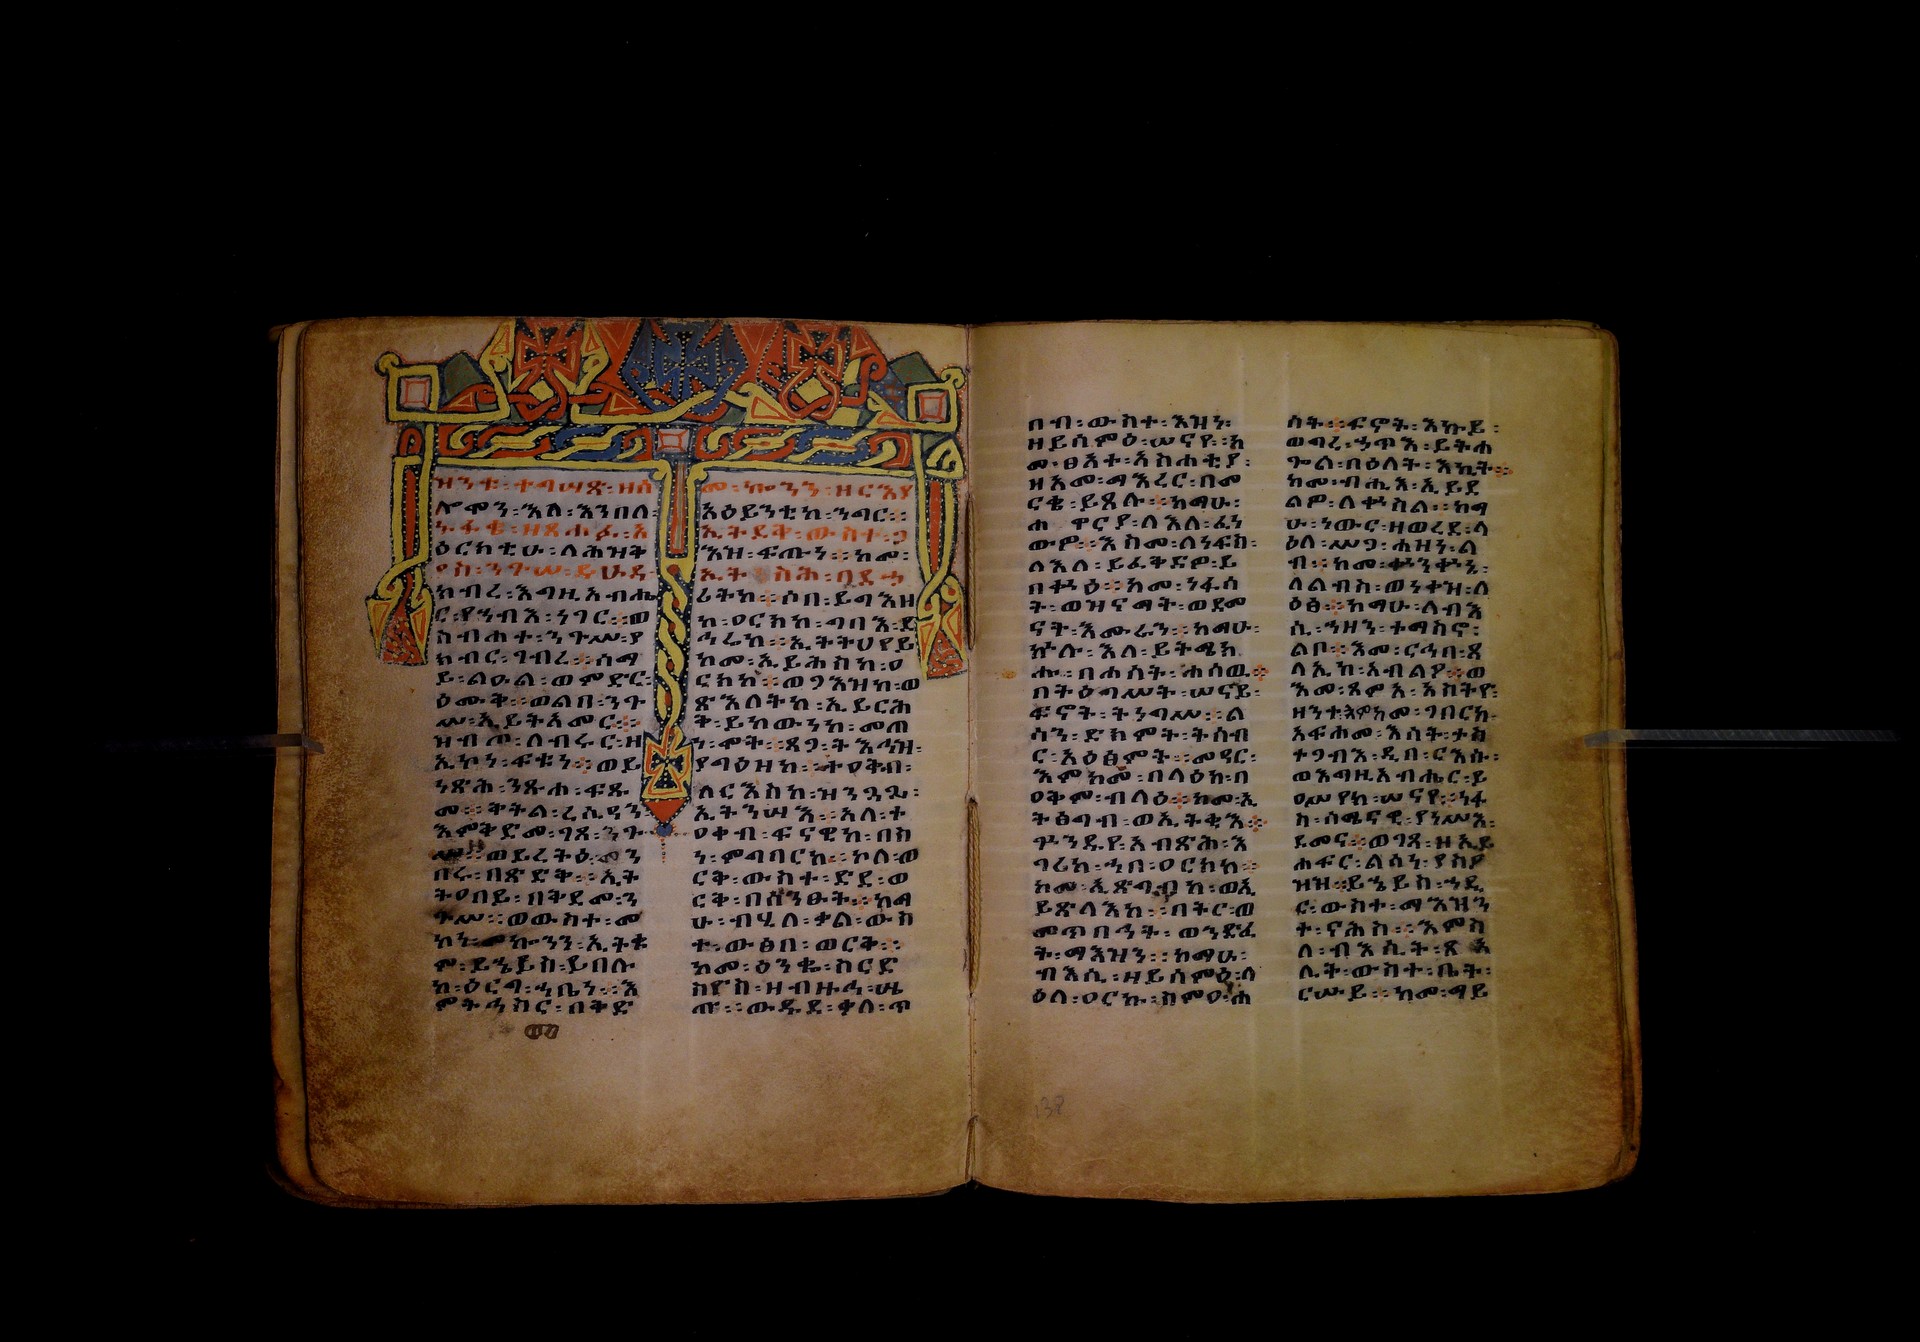 ዝንቱ፡ተግሣጽ፡ዘሰ
ሎሞን፡እለ፡እንበለ፡
ኑፋቄ፡ዘጸሐፉ፡አ
ዕርክቲሁ፡ለሕዝቅ
ያስ፡ንጉሠ፡ይሁዳ፡
ክብረ፡እግዚአብሔ
ር፡የኀብእ፡ነገር፡፡ወ
ስብሐተ፡ንጉሥ፡ያ
ከብር፡ግብረ፡፡ሰማ
ይ፡ልዑል፡ወምድር፡
ዕሙቅ፡፡ወልበ፡ንጉ
ሥ፡ኢይትአመር፡፡
ዝብጦ፡ለብሩር፡ዘ
ኢኮነ፡ፍቱነ፡፡ወይ
ነጽሕ፡ንጹሐ፡ፍጹ
መ፡፡ቅትል፡ረሲዓን፡
እምቅድመ፡ገጸ፡ንጉ
ሥ፡፡ወይረትዕ፡መን
በሩ፡በጽድቅ፡፡ኢት
ትዐበይ፡በቅደመ፡ን
ጉሥ፡፡ወውስተ፡መ
ካነ፡መኰንን፡ኢትቁ
ም፡ይኄይስ፡ይበሉ
ከ፡ዕርግ፡ኀቤነ፡፡እ
ምትኀስር፡በቅድ
መ፡ኰንን፡ዘርእያ
አዕይንቲከ፡ንግር፡፡
ኢትደቅ፡ውስተ፡ጋ
እዝ፡ፍጡነ፡፡ከመ፡
ኢትነስሕ፡በደኃ
ሪትከ፡፡ሶበ፡ይግእዘ
ከ፡ዐርክከ፡ግባእ፡ድ
ኅሬከ፡፡ኢትትሀየይ
ከመ፡ኢይሕስከ፡ዐ
ርክከ፡፡ወጋእዝከ፡ወ
ጽእለትከ፡ኢይርሕ
ቅ፡ይከውነከ፡መጠ
ነ፡ሞት፡፡ጸጋ፡ትእኅዝ፡
የግዕዘከ፡፡ትዐቅብ፡
ለርእስከ፡ዝንጓጔ፡
ኢትንሣእ፡፡አለ፡ተ
ዐቀብ፡ፍናዊከ፡በከ
ነ፡ምግባርከ፡፡ኮለ፡ወ
ርቅ፡ውስተ፡ድደ፡ወ
ርቅ፡በሰንፁት፡፡ከማ
ሁ፡ብሂለ፡ቃል፡ውስ
ተ፡ውፅበ፡ወርቅ፡፡
ከመ፡ዕንቈ፡ስርድ
ስዮስ፡ዘብዙኅ፡ሤ
ጡ፡፡ውዱደ፡ቃለ፡ጥ
በብ፡ውስተ፡እዝነ፡
ዘይሰምዕ፡ሠናየ፡፡ከ
መ፡ፀአተ፡አስሐቲያ፡
ዘአመ፡ማእረር፡በመ
ርቄ፡ይጸሉ፡፡ከማሁ፡
ሐዋርያ፡ለእለ፡ፈነ
ውዎ፡፡እስመ፡ለነፍስ፡
ለእለ፡ይፈቅድዎ፡ይ
በቍዕ፡፡ከመ፡ነፋሳ
ት፡ወዝናማት፡ወደመ
ናት፡እሙራን፡፡ከማሁ፡
ኵሉ፡እለ፡ይትሜክ
ሑ፡በሐሰት፡ሐሰዉ፡፡
በትዕግሥት፡ሠናይ፡
ፍኖት፡ትነግሥ፡፡ል
ሳን፡ድክምት፡ትሰብ
ር፡አዕፅምት፡፡መዓር፡
እምከመ፡በላዕከ፡በ
ዐቅም፡ብላዕ፡፡ከመ፡ኢ
ትፅግብ፡ወኢትቂእ፡፡
ሥንዱየ፡አብጽሕ፡እ
ግሪከ፡ኀበ፡ዐርክከ፡፡
ከመ፡ኢጽግብከ፡ወኢ
ይጽላእከ፡፡በትር፡ወ
መጥባኅት፡ወንድፈ
ት፡ማእዝን፡፡ከማሁ፡
ብእሲ፡ዘይሰምዕ፡ላ
ዕለ፡ዐርኩ፡ስምዐ፡ሐ
ሰት፡፡ፍኖት፡እኩይ፡
ወግረ፡ኃጥእ፡ይትሐ
ጐል፡በዕለት፡እኪት፡፡
ከመ፡ብሒእ፡ኢይደ
ልዎ፡ለቍስል፡፡ከማ
ሁ፡ነውር፡ዘወረደ፡ላ
ዕለ፡ሥጋ፡ሐዝነ፡ል
ብ፡፡ከመ፡ቍንቍኔ፡
ለልብስ፡ወነቀዝ፡ለ
ዕፅ፡፡ከማሁ፡ለብእ
ሲ፡ኀዘን፡ተማስኖ፡
ልቦ፡፡እመ፡ርኅበ፡ጸ
ላኢከ፡አብልዖ፡፡ወ
እመ፡ጸምአ፡አስትዮ፡
ዘንተ፡እምከመ፡ገበርከ፡
አፍሐመ፡እሳት፡ታስ
ተጋብእ፡ዲበ፡ርእሱ፡
ወእግዚአብሔር፡ይ
ዐሥየከ፡ሠናየ፡፡ነፋ
ስ፡ሰሜናዊ፡የነሥእ፡
ደመና፡፡ወገጸ፡ዘኢይ
ሐፍር፡ልሳነ፡ያስዖ
ዝዝ፡፡ይኄይስ፡ኀዲ
ር፡ውስተ፡ማእዝን
ተ፡ናሕስ፡፡እምስ
ለ፡ብእሲት፡ጸአ
ሊት፡ውስተ፡ቤት፡
ርሡይ፡፡ከመ፡ማይ
138